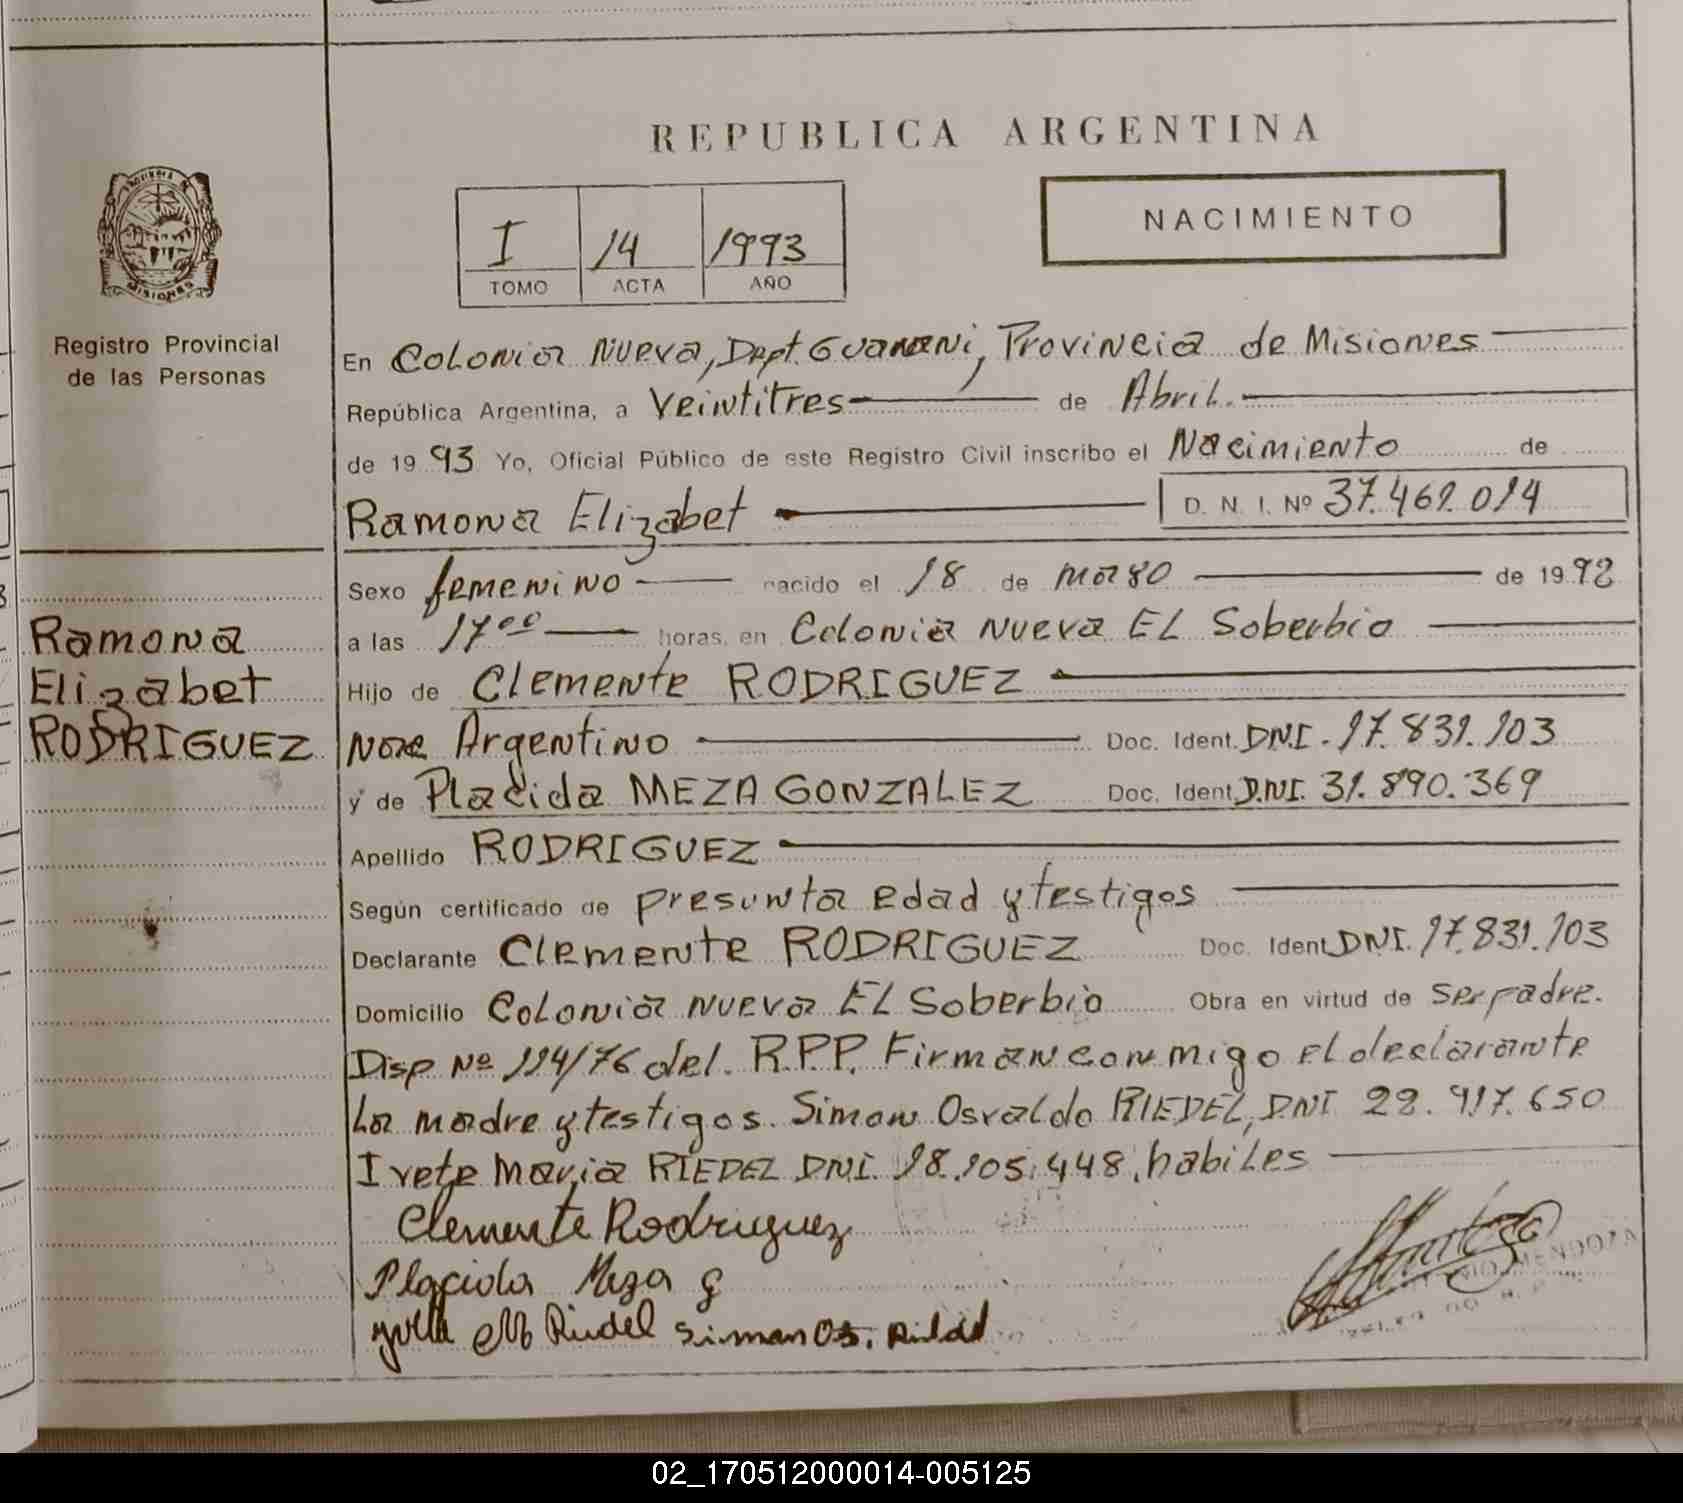 REPUBLICA ARGENTINA
NACIMIENTO
I 14 1993
TOMO ACTA AÑO
PROVINCIA DE
MISIONES
Registro Provincial
de las Personas
En Colonia Nueva, Dept. Guarani, Provincia de Misiones
República Argentina, a Veintitres de Abril.
de 1993 Yo, Oficial Público de este Registro Civil inscribo el Nacimiento de
Ramona Elizabet D. N. I. Nº 37.461.014
Sexo femenino nacido el 18 de marzo de 1992
a las 17°° horas, en Colonia Nueva EL Soberbio
Ramona
Elizabet
RODRIGUEZ
Hijo de Clemente RODRIGUEZ
Nac Argentino Doc. Ident. DNI. 17.831.103
y de Placida MEZA GONZALEZ Doc. Ident. D.NI. 31.890.369
Apellido RODRIGUEZ
Según certificado de presunta edad y testigos
Declarante Clemente RODRIGUEZ Doc. Ident DNI. 17.831.103
Domicilio Colonia Nueva EL Soberbio Obra en virtud de Ser padre.
Disp Nº 114/76 del. R.P.P. Firman conmigo el declarante
La madre y testigos. Simon Osvaldo RIEDEL, DNI 22.917.650
Ivete Maria RIEDEL DNI. 18.105.448, habiles
Clemente Rodriguez
Placida Meza G
M Riedel Simon Os. Riedel
MENDOZA
02_170512000014-005125